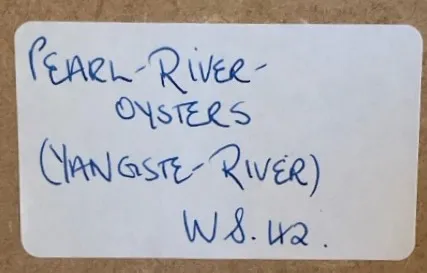 PEARL-RIVER-
OYSTERS
(YANGISTE-RIVER)
W S. 42.